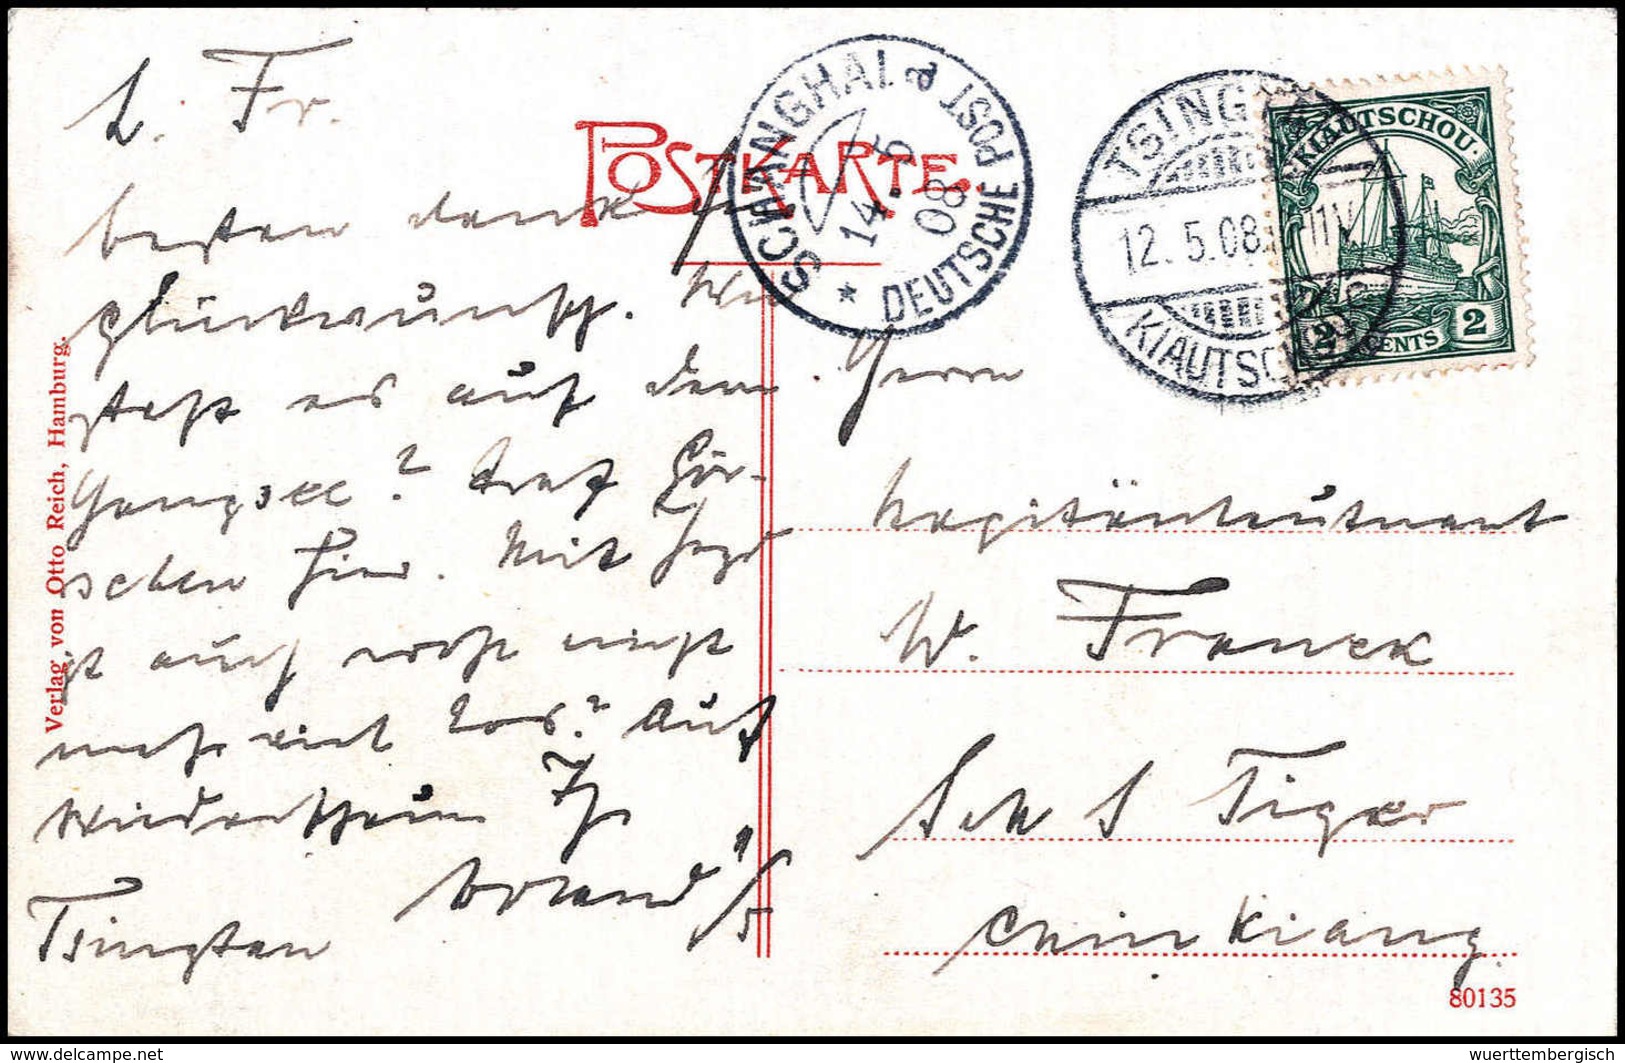 L. Fr.
besten Dank für
Glückwunsch. Wie
steht es auf dem
Yangsee? Traf Gör-
schen hier. Mit Jagd
ist auch wohl nicht
mehr viel los? Auf
Wiedersehen Ihr
Tsingtau
POSTKARTE.
SCHANGHAI a DEUTSCHE POST
14.5
08
TSINGTAU
12.5.08. 11V
KIAUTSCHOU
KIAUTSCHOU.
2 CENTS 2
Herrn
Kapitänleutnant
W. Franck
S M S Tiger
Chinkiang
Verlag von Otto Reich, Hamburg.
80135
delcampe.net
wuerttembergisch